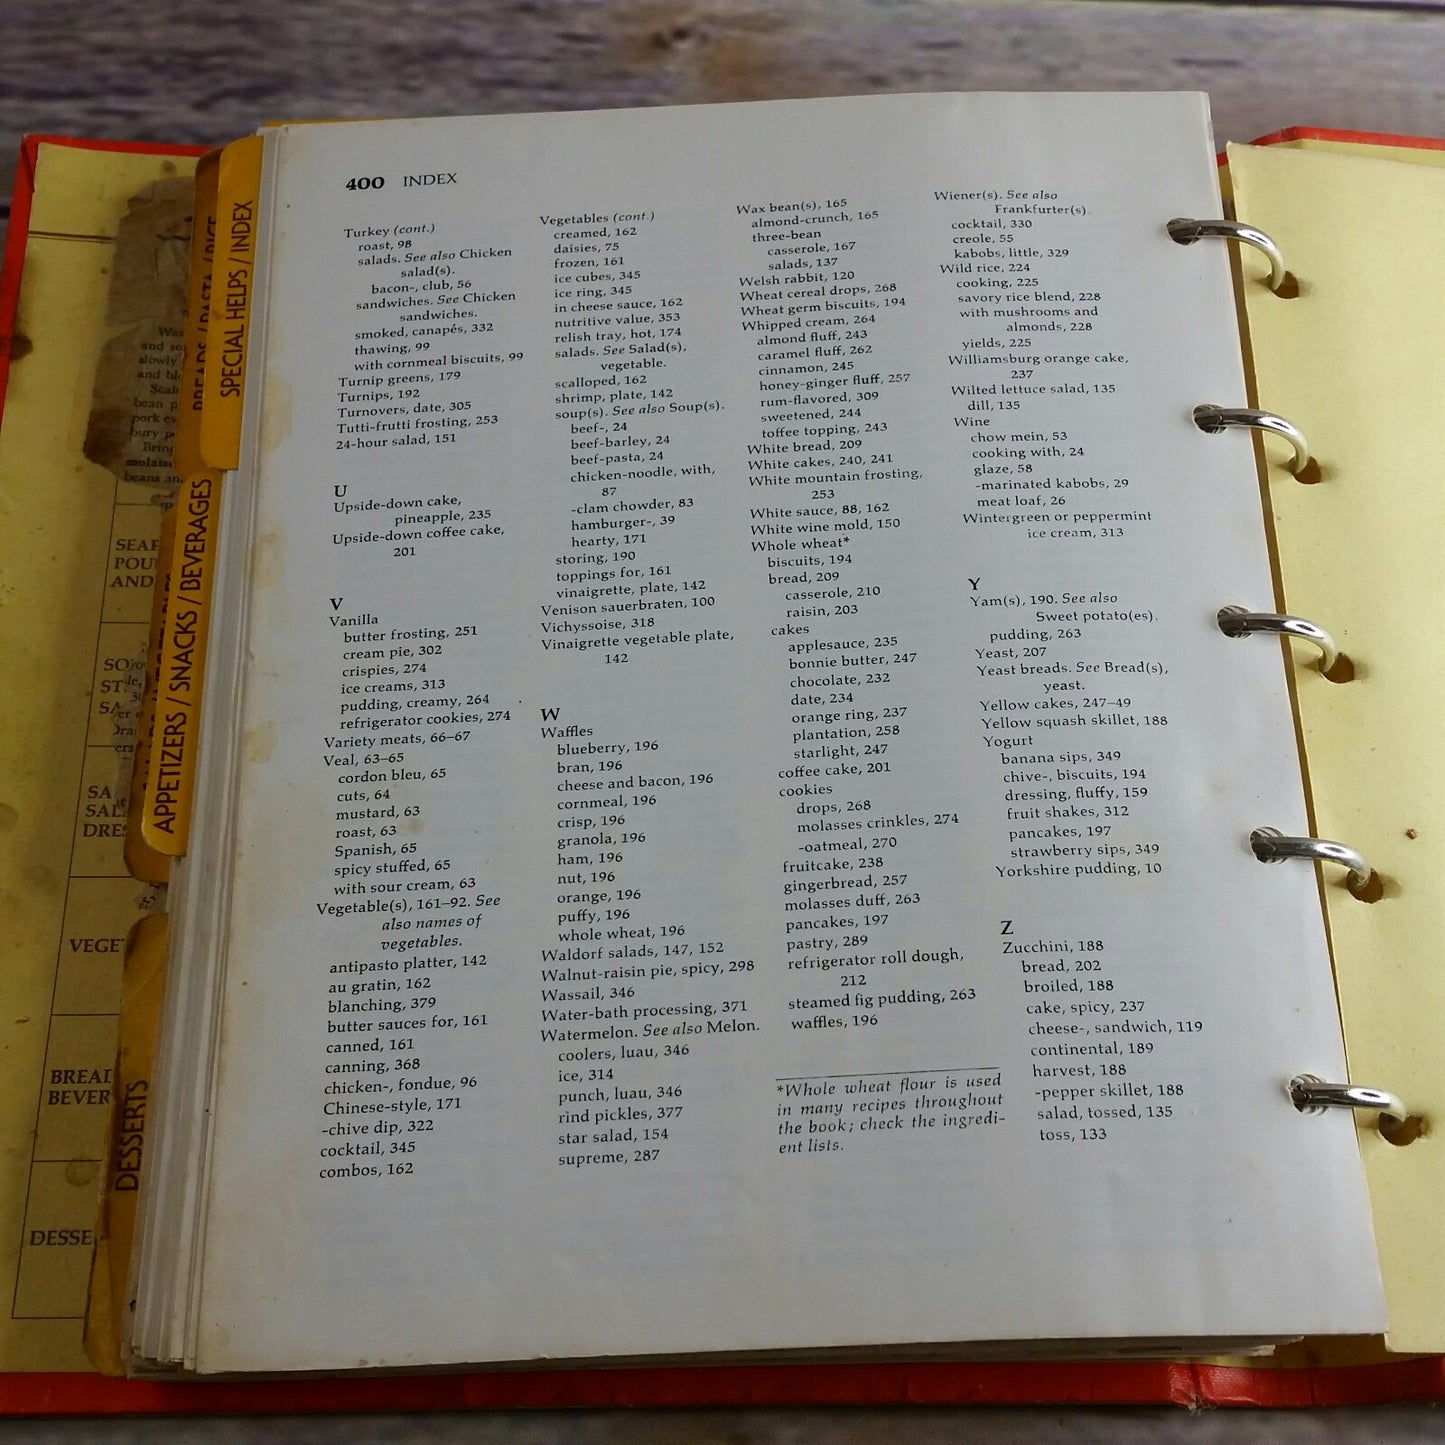 400 INDEX
Turkey (cont.)
roast, 98
salads. See also Chicken
salad(s).
bacon-, club, 56
sandwiches. See Chicken
sandwiches.
smoked, canapés, 332
thawing, 99
with cornmeal biscuits, 99
Turnip greens, 179
Turnips, 192
Turnovers, date, 305
Tutti-frutti frosting, 253
24-hour salad, 151
U
Upside-down cake,
pineapple, 235
Upside-down coffee cake,
201
V
Vanilla
butter frosting, 251
cream pie, 302
crispies, 274
ice creams, 313
pudding, creamy, 264
refrigerator cookies, 274
Variety meats, 66–67
Veal, 63–65
cordon bleu, 65
cuts, 64
mustard, 63
roast, 63
Spanish, 65
spicy stuffed, 65
with sour cream, 63
Vegetable(s), 161–92. See
also names of
vegetables.
antipasto platter, 142
au gratin, 162
blanching, 379
butter sauces for, 161
canned, 161
canning, 368
chicken-, fondue, 96
Chinese-style, 171
-chive dip, 322
cocktail, 345
combos, 162
Vegetables (cont.)
creamed, 162
daisies, 75
frozen, 161
ice cubes, 345
ice ring, 345
in cheese sauce, 162
nutritive value, 353
relish tray, hot, 174
salads. See Salad(s),
vegetable.
scalloped, 162
shrimp, plate, 142
soup(s). See also Soup(s).
beef-, 24
beef-barley, 24
beef-pasta, 24
chicken-noodle, with,
87
-clam chowder, 83
hamburger-, 39
hearty, 171
storing, 190
toppings for, 161
vinaigrette, plate, 142
Venison sauerbraten, 100
Vichyssoise, 318
Vinaigrette vegetable plate,
142
W
Waffles
blueberry, 196
bran, 196
cheese and bacon, 196
cornmeal, 196
crisp, 196
granola, 196
ham, 196
nut, 196
orange, 196
puffy, 196
whole wheat, 196
Waldorf salads, 147, 152
Walnut-raisin pie, spicy, 298
Wassail, 346
Water-bath processing, 371
Watermelon. See also Melon.
coolers, luau, 346
ice, 314
punch, luau, 346
rind pickles, 377
star salad, 154
supreme, 287
Wax bean(s), 165
almond-crunch, 165
three-bean
casserole, 167
salads, 137
Welsh rabbit, 120
Wheat cereal drops, 268
Wheat germ biscuits, 194
Whipped cream, 264
almond fluff, 243
caramel fluff, 262
cinnamon, 245
honey-ginger fluff, 257
rum-flavored, 309
sweetened, 244
toffee topping, 243
White bread, 209
White cakes, 240, 241
White mountain frosting,
253
White sauce, 88, 162
White wine mold, 150
Whole wheat*
biscuits, 194
bread, 209
casserole, 210
raisin, 203
cakes
applesauce, 235
bonnie butter, 247
chocolate, 232
date, 234
orange ring, 237
plantation, 258
starlight, 247
coffee cake, 201
cookies
drops, 268
molasses crinkles, 274
-oatmeal, 270
fruitcake, 238
gingerbread, 257
molasses duff, 263
pancakes, 197
pastry, 289
refrigerator roll dough,
212
steamed fig pudding, 263
waffles, 196
*Whole wheat flour is used
in many recipes throughout
the book; check the ingredi-
ent lists.
Wiener(s). See also
Frankfurter(s).
cocktail, 330
creole, 55
kabobs, little, 329
Wild rice, 224
cooking, 225
savory rice blend, 228
with mushrooms and
almonds, 228
yields, 225
Williamsburg orange cake,
237
Wilted lettuce salad, 135
dill, 135
Wine
chow mein, 53
cooking with, 24
glaze, 58
-marinated kabobs, 29
meat loaf, 26
Wintergreen or peppermint
ice cream, 313
Y
Yam(s), 190. See also
Sweet potato(es).
pudding, 263
Yeast, 207
Yeast breads. See Bread(s),
yeast.
Yellow cakes, 247–49
Yellow squash skillet, 188
Yogurt
banana sips, 349
chive-, biscuits, 194
dressing, fluffy, 159
fruit shakes, 312
pancakes, 197
strawberry sips, 349
Yorkshire pudding, 10
Z
Zucchini, 188
bread, 202
broiled, 188
cake, spicy, 237
cheese-, sandwich, 119
continental, 189
harvest, 188
-pepper skillet, 188
salad, tossed, 135
toss, 133
SPECIAL HELPS / INDEX
APPETIZERS / SNACKS / BEVERAGES
DESSERTS